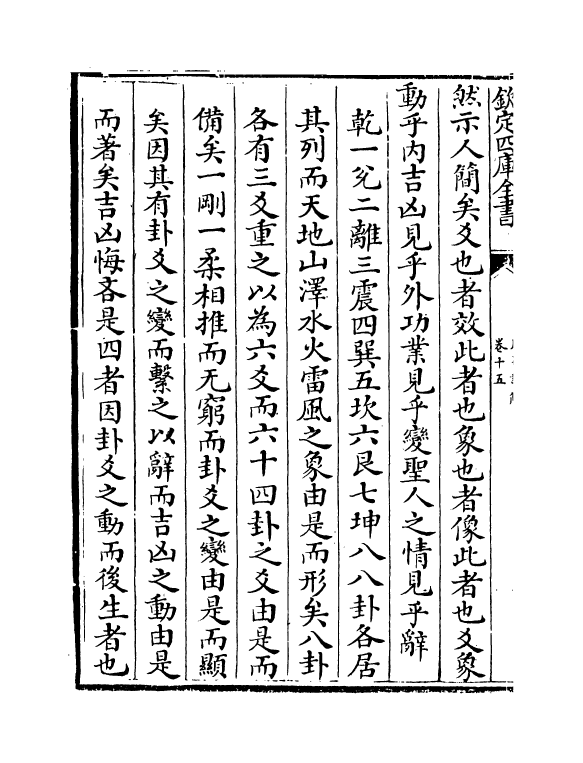 欽定四庫全書
卷十五
然示人簡矣爻也者效此者也象也者像此者也爻象
動乎内吉凶見乎外功業見乎變聖人之情見乎辭
乾一兊二離三震四巽五坎六艮七坤八八卦各居
其列而天地山澤水火雷風之象由是而形矣八卦
各有三爻重之以為六爻而六十四卦之爻由是而
備矣一剛一柔相推而无窮而卦爻之變由是而顯
矣因其有卦爻之變而繫之以辭而吉凶之動由是
而著矣吉凶悔吝是四者因卦爻之動而後生者也